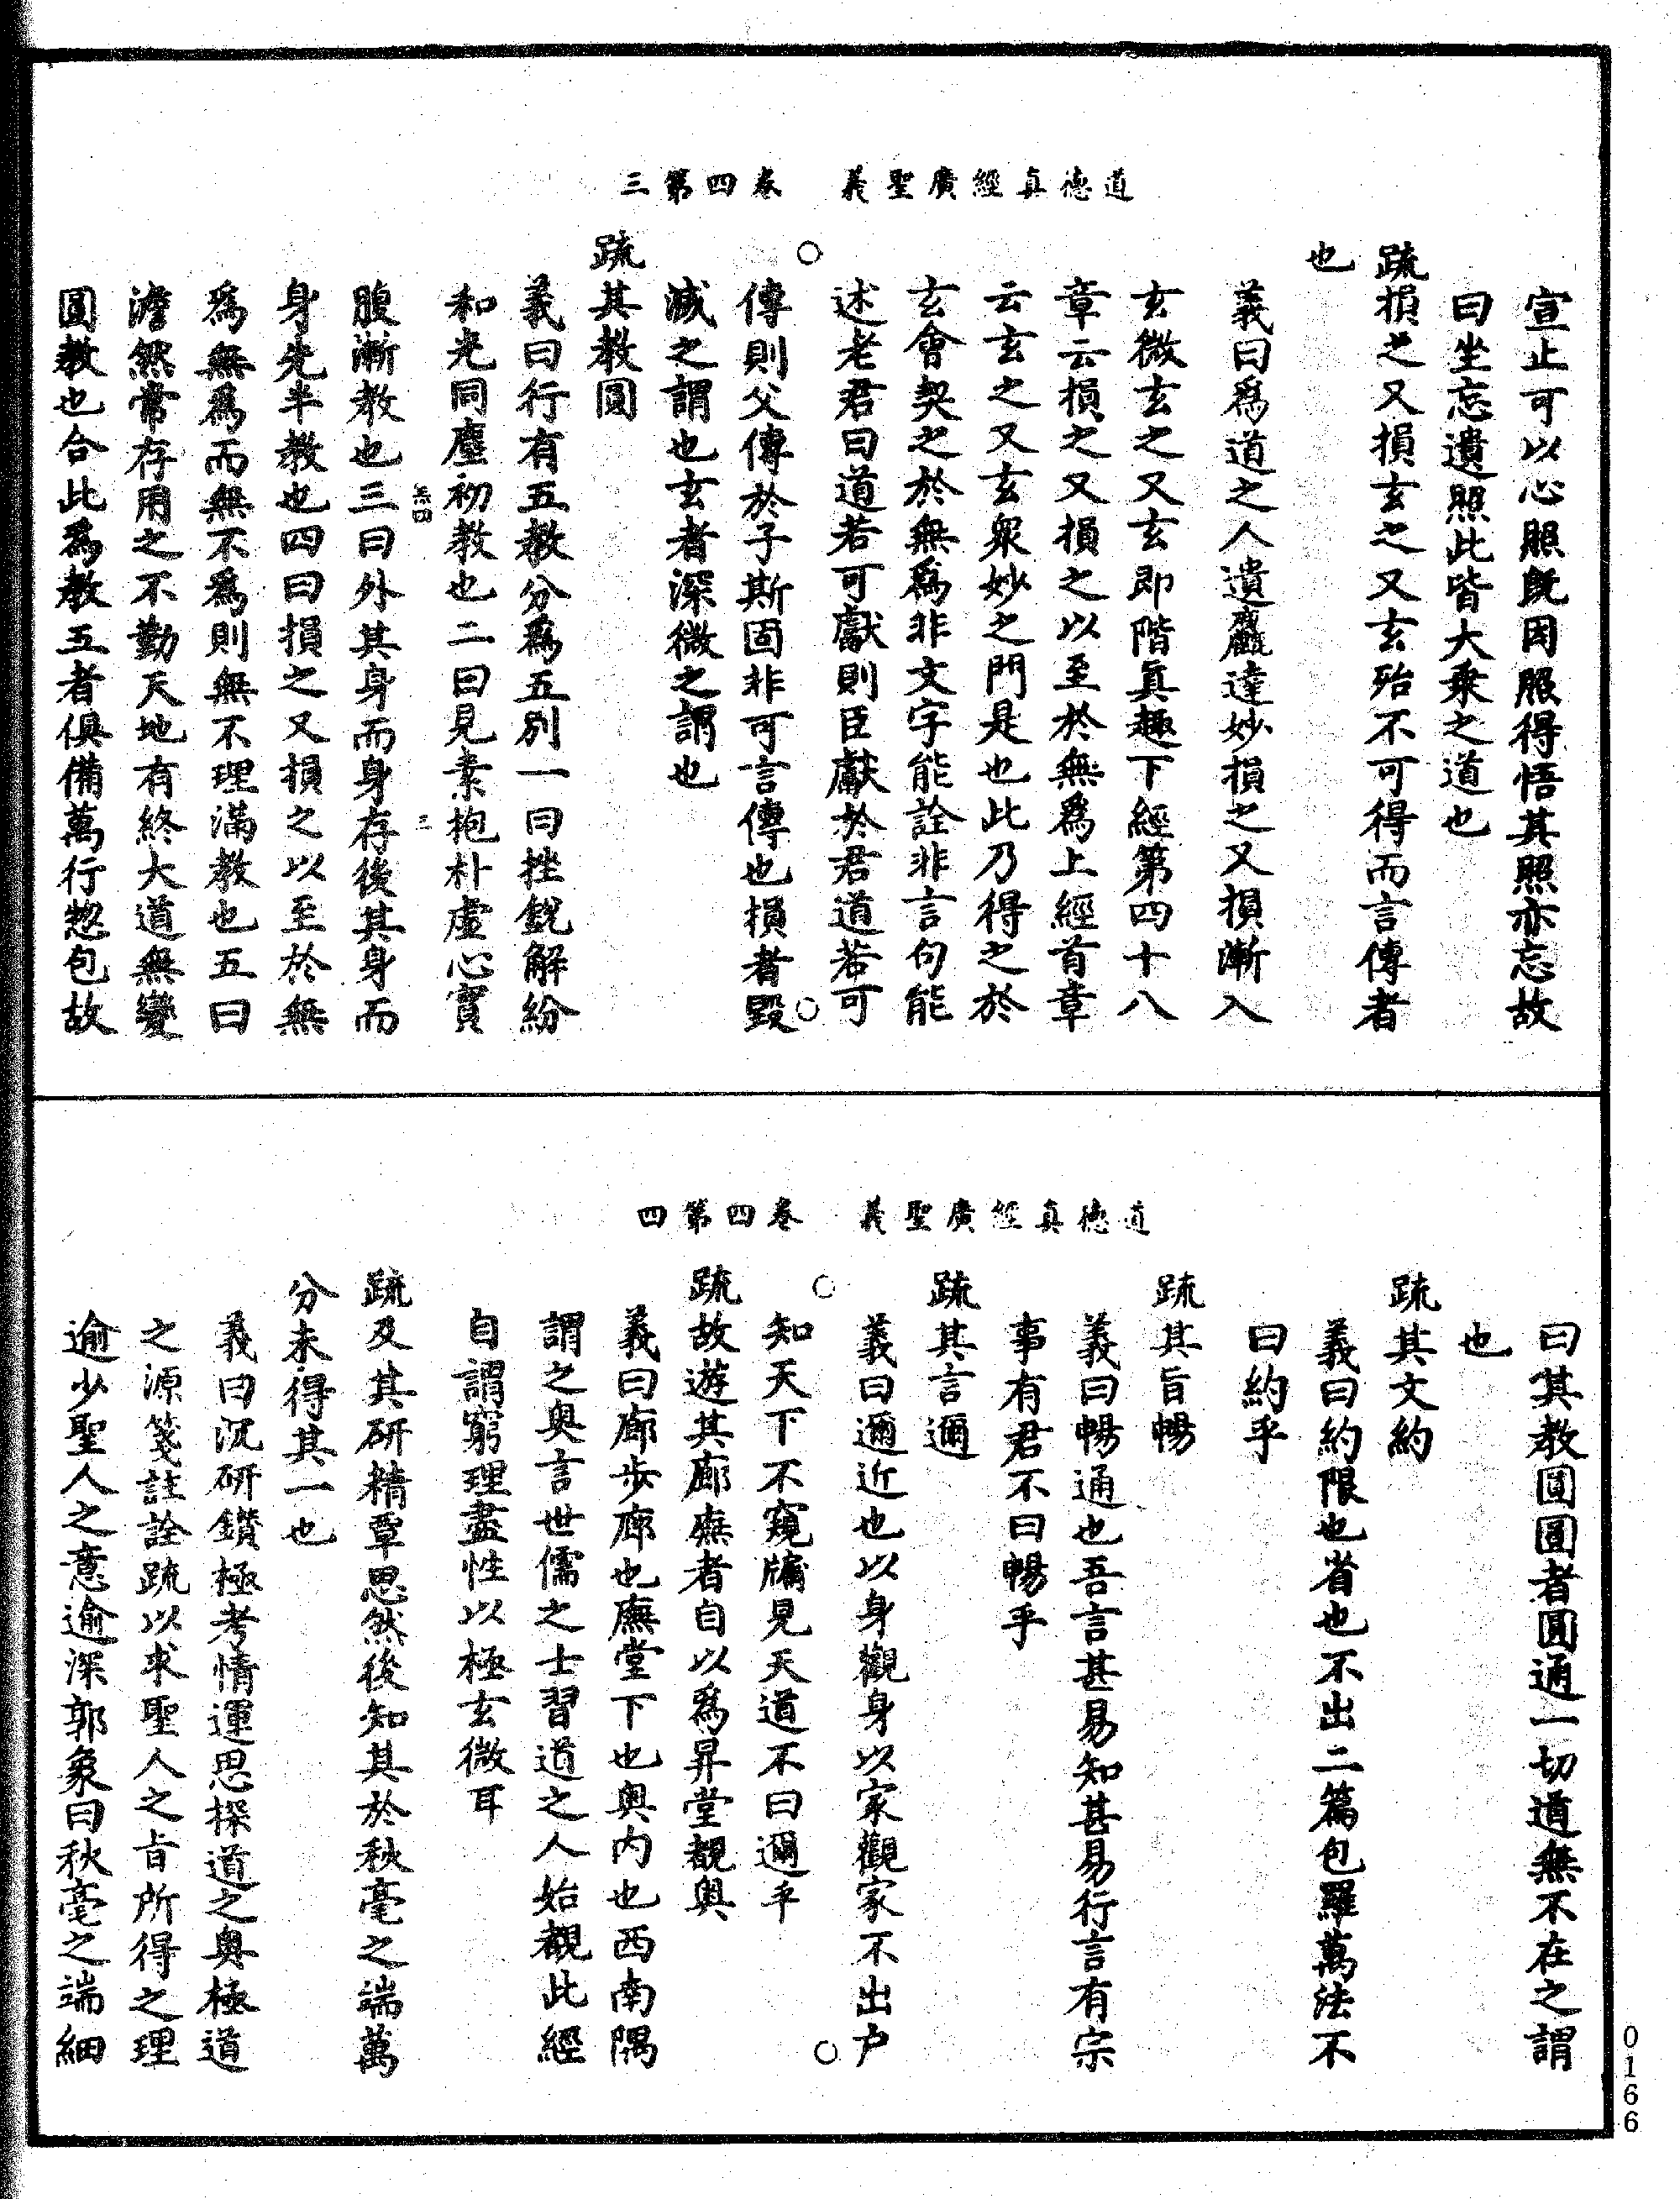 道德真經廣聖義　卷四第三
宣止可以心照既因照得悟其照亦忘故
曰坐忘遺照此皆大乘之道也
疏損之又損玄之又玄殆不可得而言傳者
也
義曰爲道之人遺麤達妙損之又損漸入
玄微玄之又玄玄即階真趣下經第四十八
章云損之又損之以至於無爲上經首章
云玄之又玄衆妙之門是也此乃得之於
玄會契之於無爲非文字能詮非言句能
述老君曰道若可獻則臣獻於君道若可
傳則父傳於子斯固非可言傳也損者毀
減之謂也玄者深微之謂也
疏其教圓
義曰行有五教分爲五別一曰挫銳解紛
和光同塵初教也二曰見素抱朴虛心實
羔四　三
腹漸教也三曰外其身而身存後其身而
身先半教也四曰損之又損之以至於無
爲無爲而無不爲則無不理滿教也五曰
澹然常存用之不勤天地有終大道無變
圓教也合此爲教五者俱備萬行惣包故
道德真經廣聖義　卷四第四
曰其教圓圓者圓通一切道無不在之謂
也
疏其文約
義曰約限也省也不出二篇包羅萬法不
曰約乎
疏其旨暢
義曰暢通也吾言甚易知甚易行言有宗
事有君不曰暢乎
疏其言邇
義曰邇近也以身觀身以家觀家不出户
知天下不窺牖見天道不曰邇乎
疏故遊其廊廡者自以爲昇堂覩奥
義曰廊步廊也廡堂下也奥内也西南隅
謂之奥言世儒之士習道之人始覩此經
自謂窮理盡性以極玄微耳
疏及其研精覃思然後知其於秋毫之端萬
分未得其一也
義曰沉研鑽極考情運思探道之奥極道
之源箋註詮疏以求聖人之旨所得之理
逾少聖人之意逾深郭象曰秋毫之端細
0166